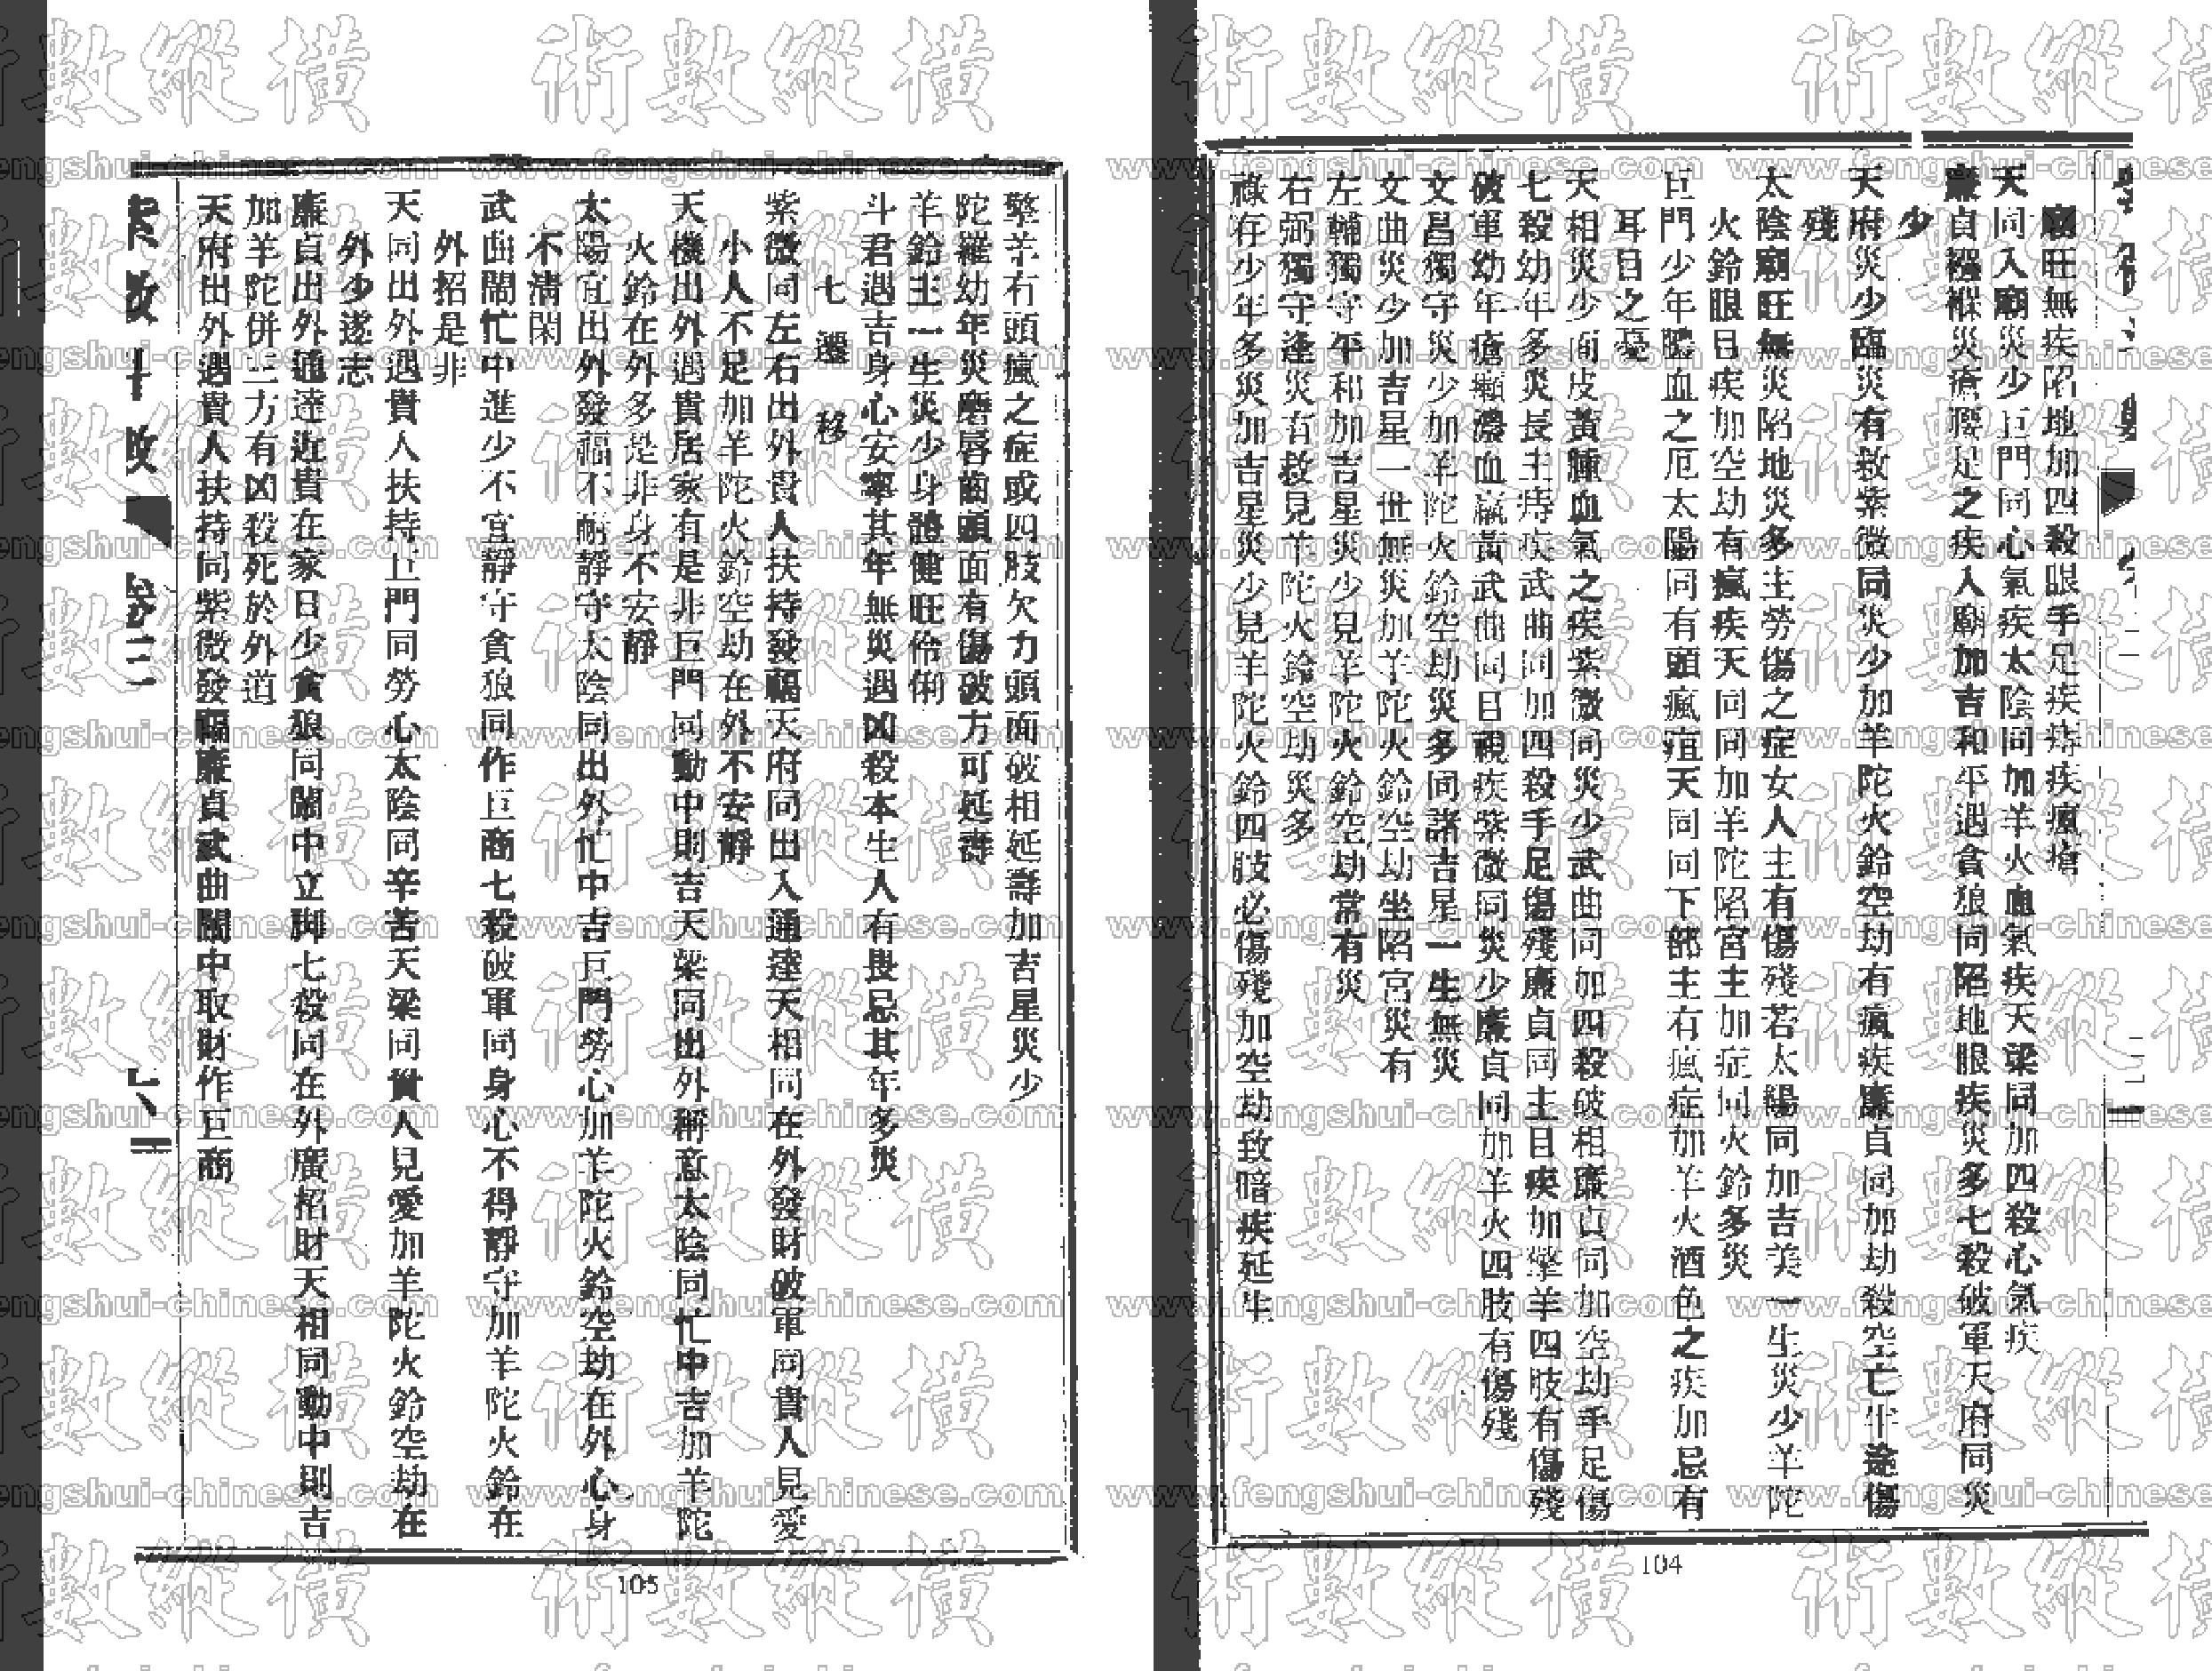 廟旺無疾陷地加四殺眼手足疾痔疾瘋瘡
天同入廟災少巨門同心氣疾太陰同加羊火血氣疾天梁同加四殺心氣疾
廉貞襁褓災瘡腰足之疾入廟加吉和平遇貪狼同陷地眼疾災多七殺破軍天府同災
少
天府災少臨災有救紫微同災少加羊陀火鈴空劫有瘋疾廉貞同加劫殺空亡半途傷
殘
太陰廟旺無災陷地災多主勞傷之症女人主有傷殘若太陽同加吉美一生災少羊陀
火鈴眼目疾加空劫有瘋疾天同同加羊陀陷宮主加症同火鈴多災
巨門少年膿血之厄太陽同有頭瘋疽天同同下部主有瘋症加羊火酒色之疾加忌有
耳目之憂
天相災少面皮黃腫血氣之疾紫微同災少武曲同加四殺破相廉貞同加空劫手足傷
七殺幼年多災長主痔疾武曲同加四殺手足傷殘廉貞同主目疾加擎羊四肢有傷殘
破軍幼年瘡癩濃血羸黃武曲同目視疾紫微同災少廉貞同加羊火四肢有傷殘
文昌獨守災少加羊陀火鈴空劫災多同諸吉星一生無災
文曲災少加吉星一世無災加羊陀火鈴空劫坐陷宮災有
左輔獨守平和加吉星災少見羊陀火鈴空劫常有災
右弼獨守逢災有救見羊陀火鈴空劫災多
祿存少年多災加吉星災少見羊陀火鈴四肢必傷殘加空劫致暗疾延生
104
擎羊有頭瘋之症或四肢欠力頭面破相延壽加吉星災少
陀羅幼年災磨唇齒頭面有傷破方可延壽
羊鈴主一生災少身體健旺伶俐
斗君遇吉身心安寧其年無災遇凶殺本生人有畏忌其年多災
七 遷 移
紫微同左右出外貴人扶持發福天府同出入通達天相同在外發財破軍同貴人見愛
小人不足加羊陀火鈴空劫在外不安靜
天機出外遇貴居家有是非巨門同動中則吉天梁同出外稱意太陰同忙中吉加羊陀
火鈴在外多是非身不安靜
太陽宜出外發福不耐靜守太陰同出外忙中吉巨門勞心加羊陀火鈴空劫在外心身
不清閑
武曲鬧忙中進少不宜靜守貪狼同作巨商七殺破軍同身心不得靜守加羊陀火鈴在
外招是非
天同出外遇貴人扶持巨門同勞心太陰同辛苦天梁同貴人見愛加羊陀火鈴空劫在
外少遂志
廉貞出外通達近貴在家日少貪狼同鬧中立脚七殺同在外廣招財天相同動中則吉
加羊陀併三方有凶殺死於外道
天府出外遇貴人扶持同紫微發福廉貞武曲鬧中取財作巨商
卷三
105
www.fengshui-chinese.com
術數縱橫